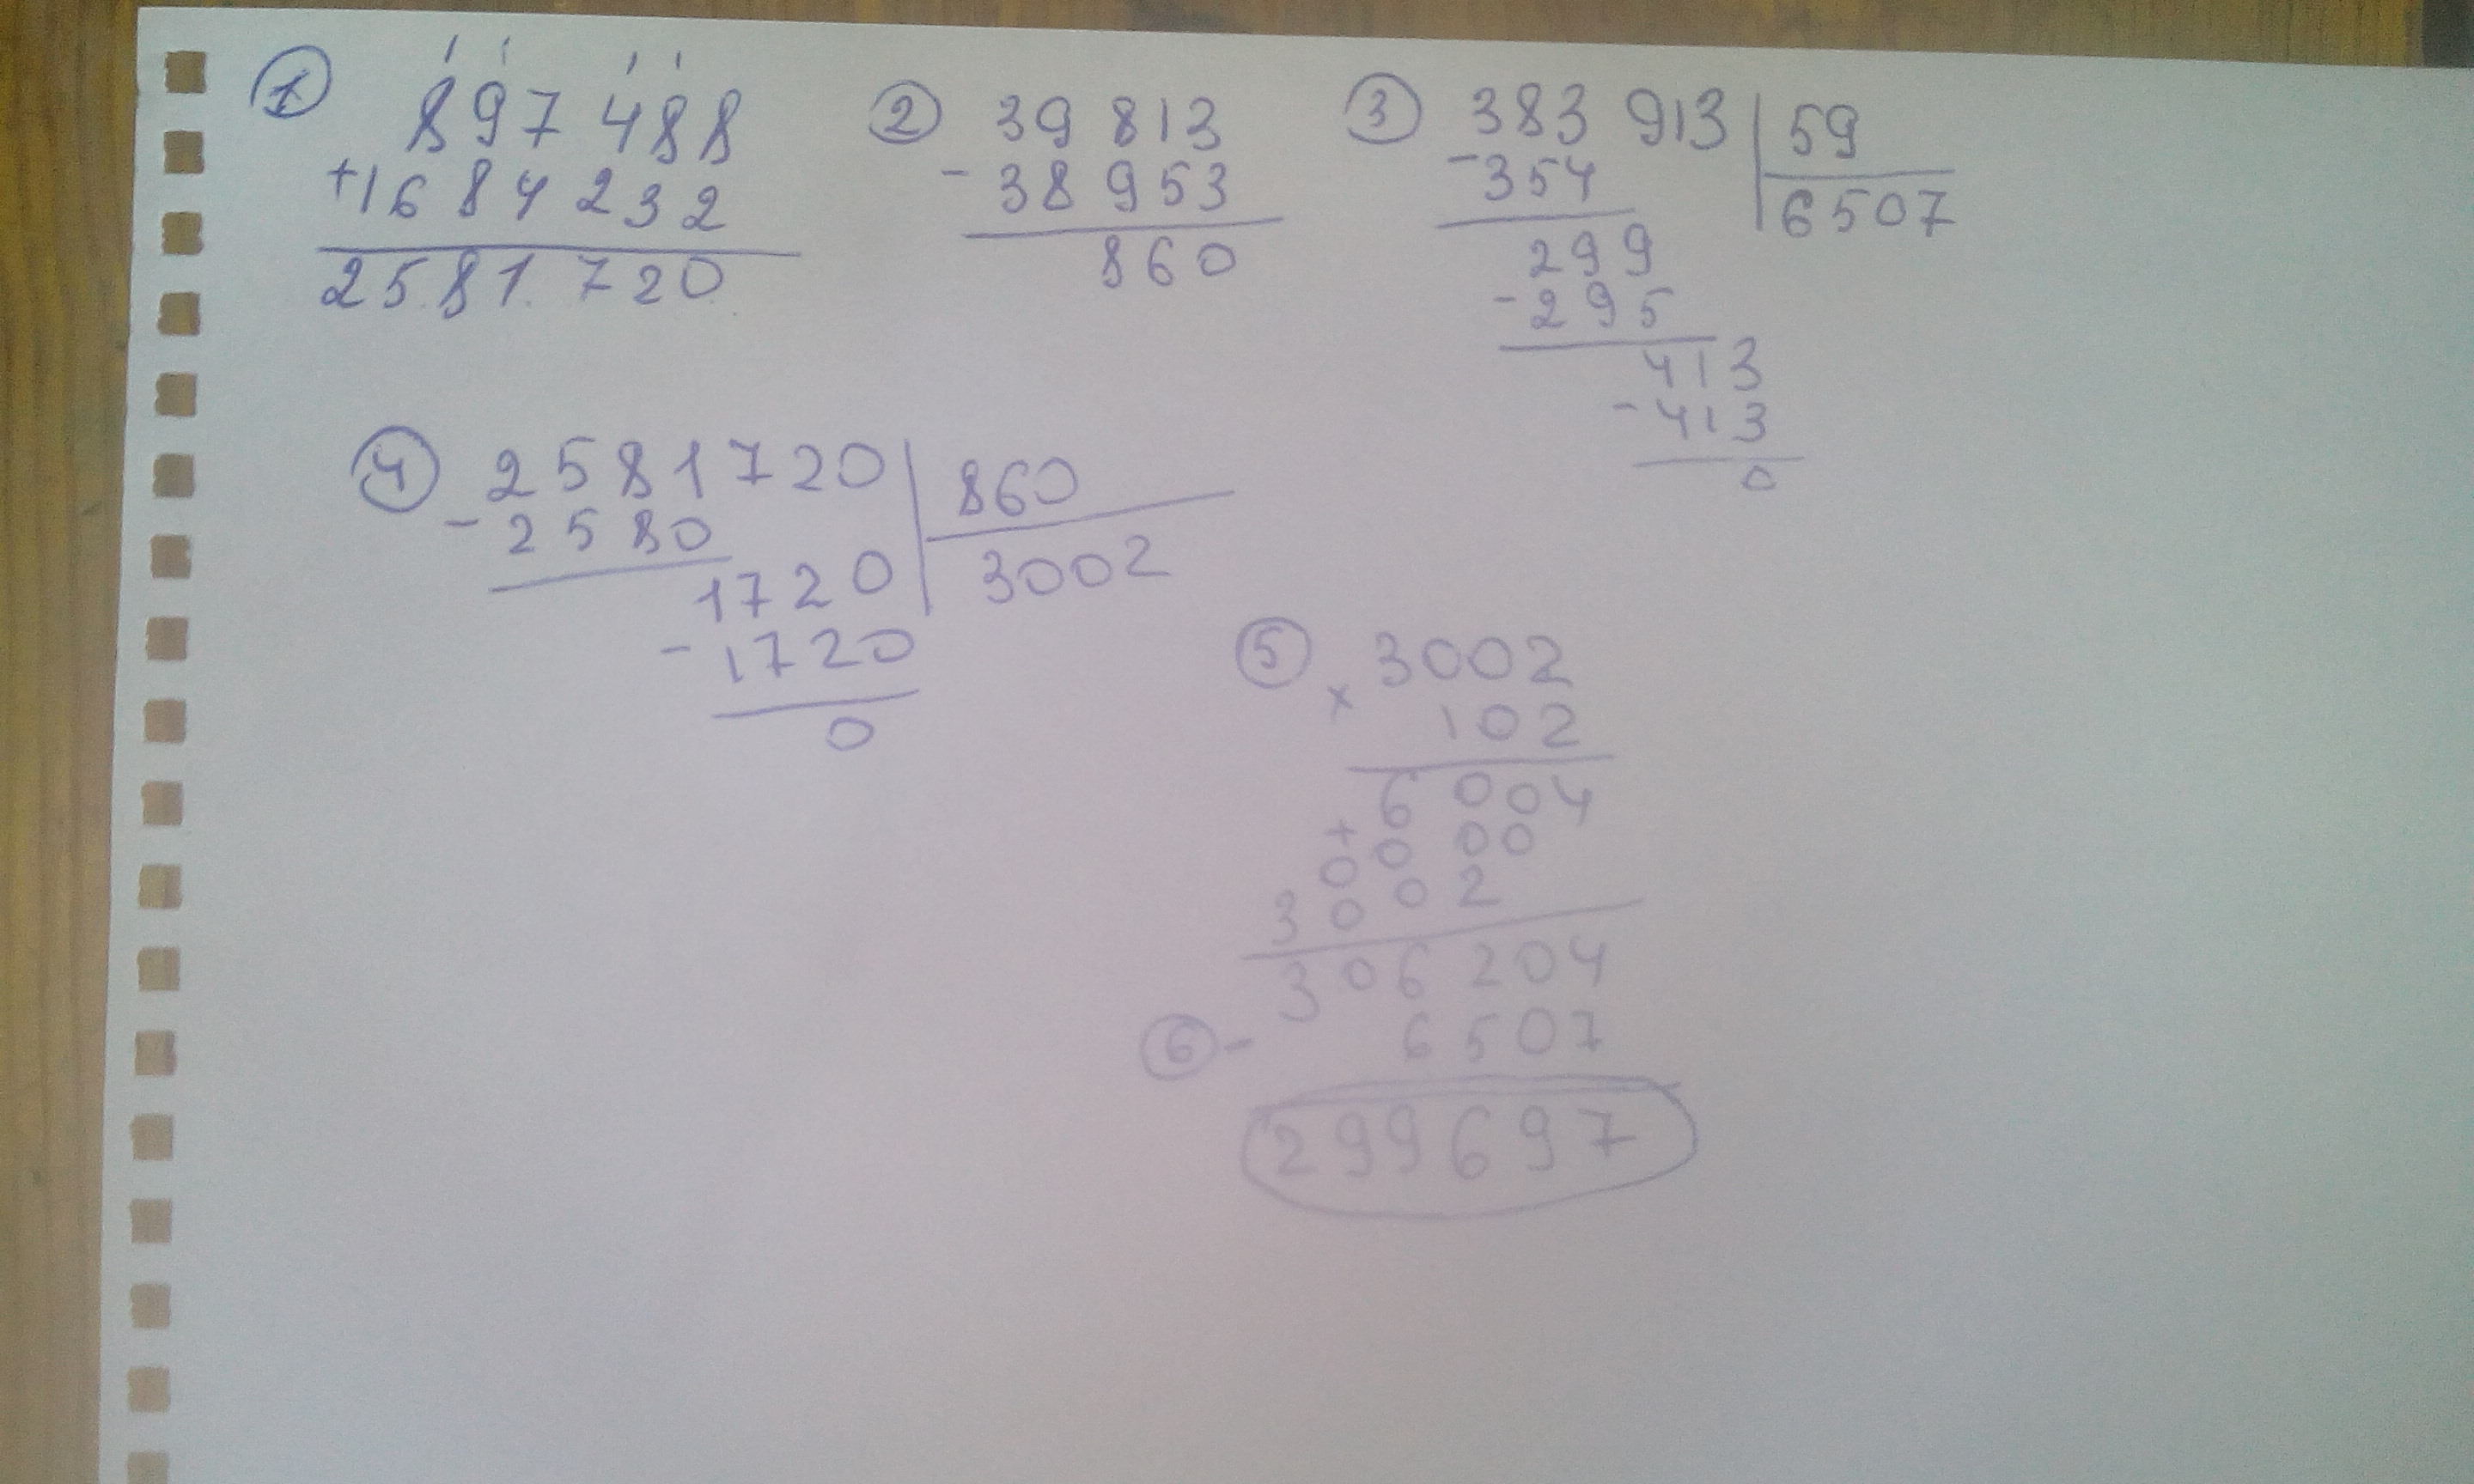 ① 897 488
+1684 232
2581 720
② 39 813
- 38 953
860
③ 383 913 | 59
- 354 | 6507
299
- 295
413
- 413
0
④ 2581720 | 860
- 2580 | 3002
1720
- 1720
0
⑤ 3002
x 102
6004
+ 0000
3002
306204
⑥ - 6507
299697